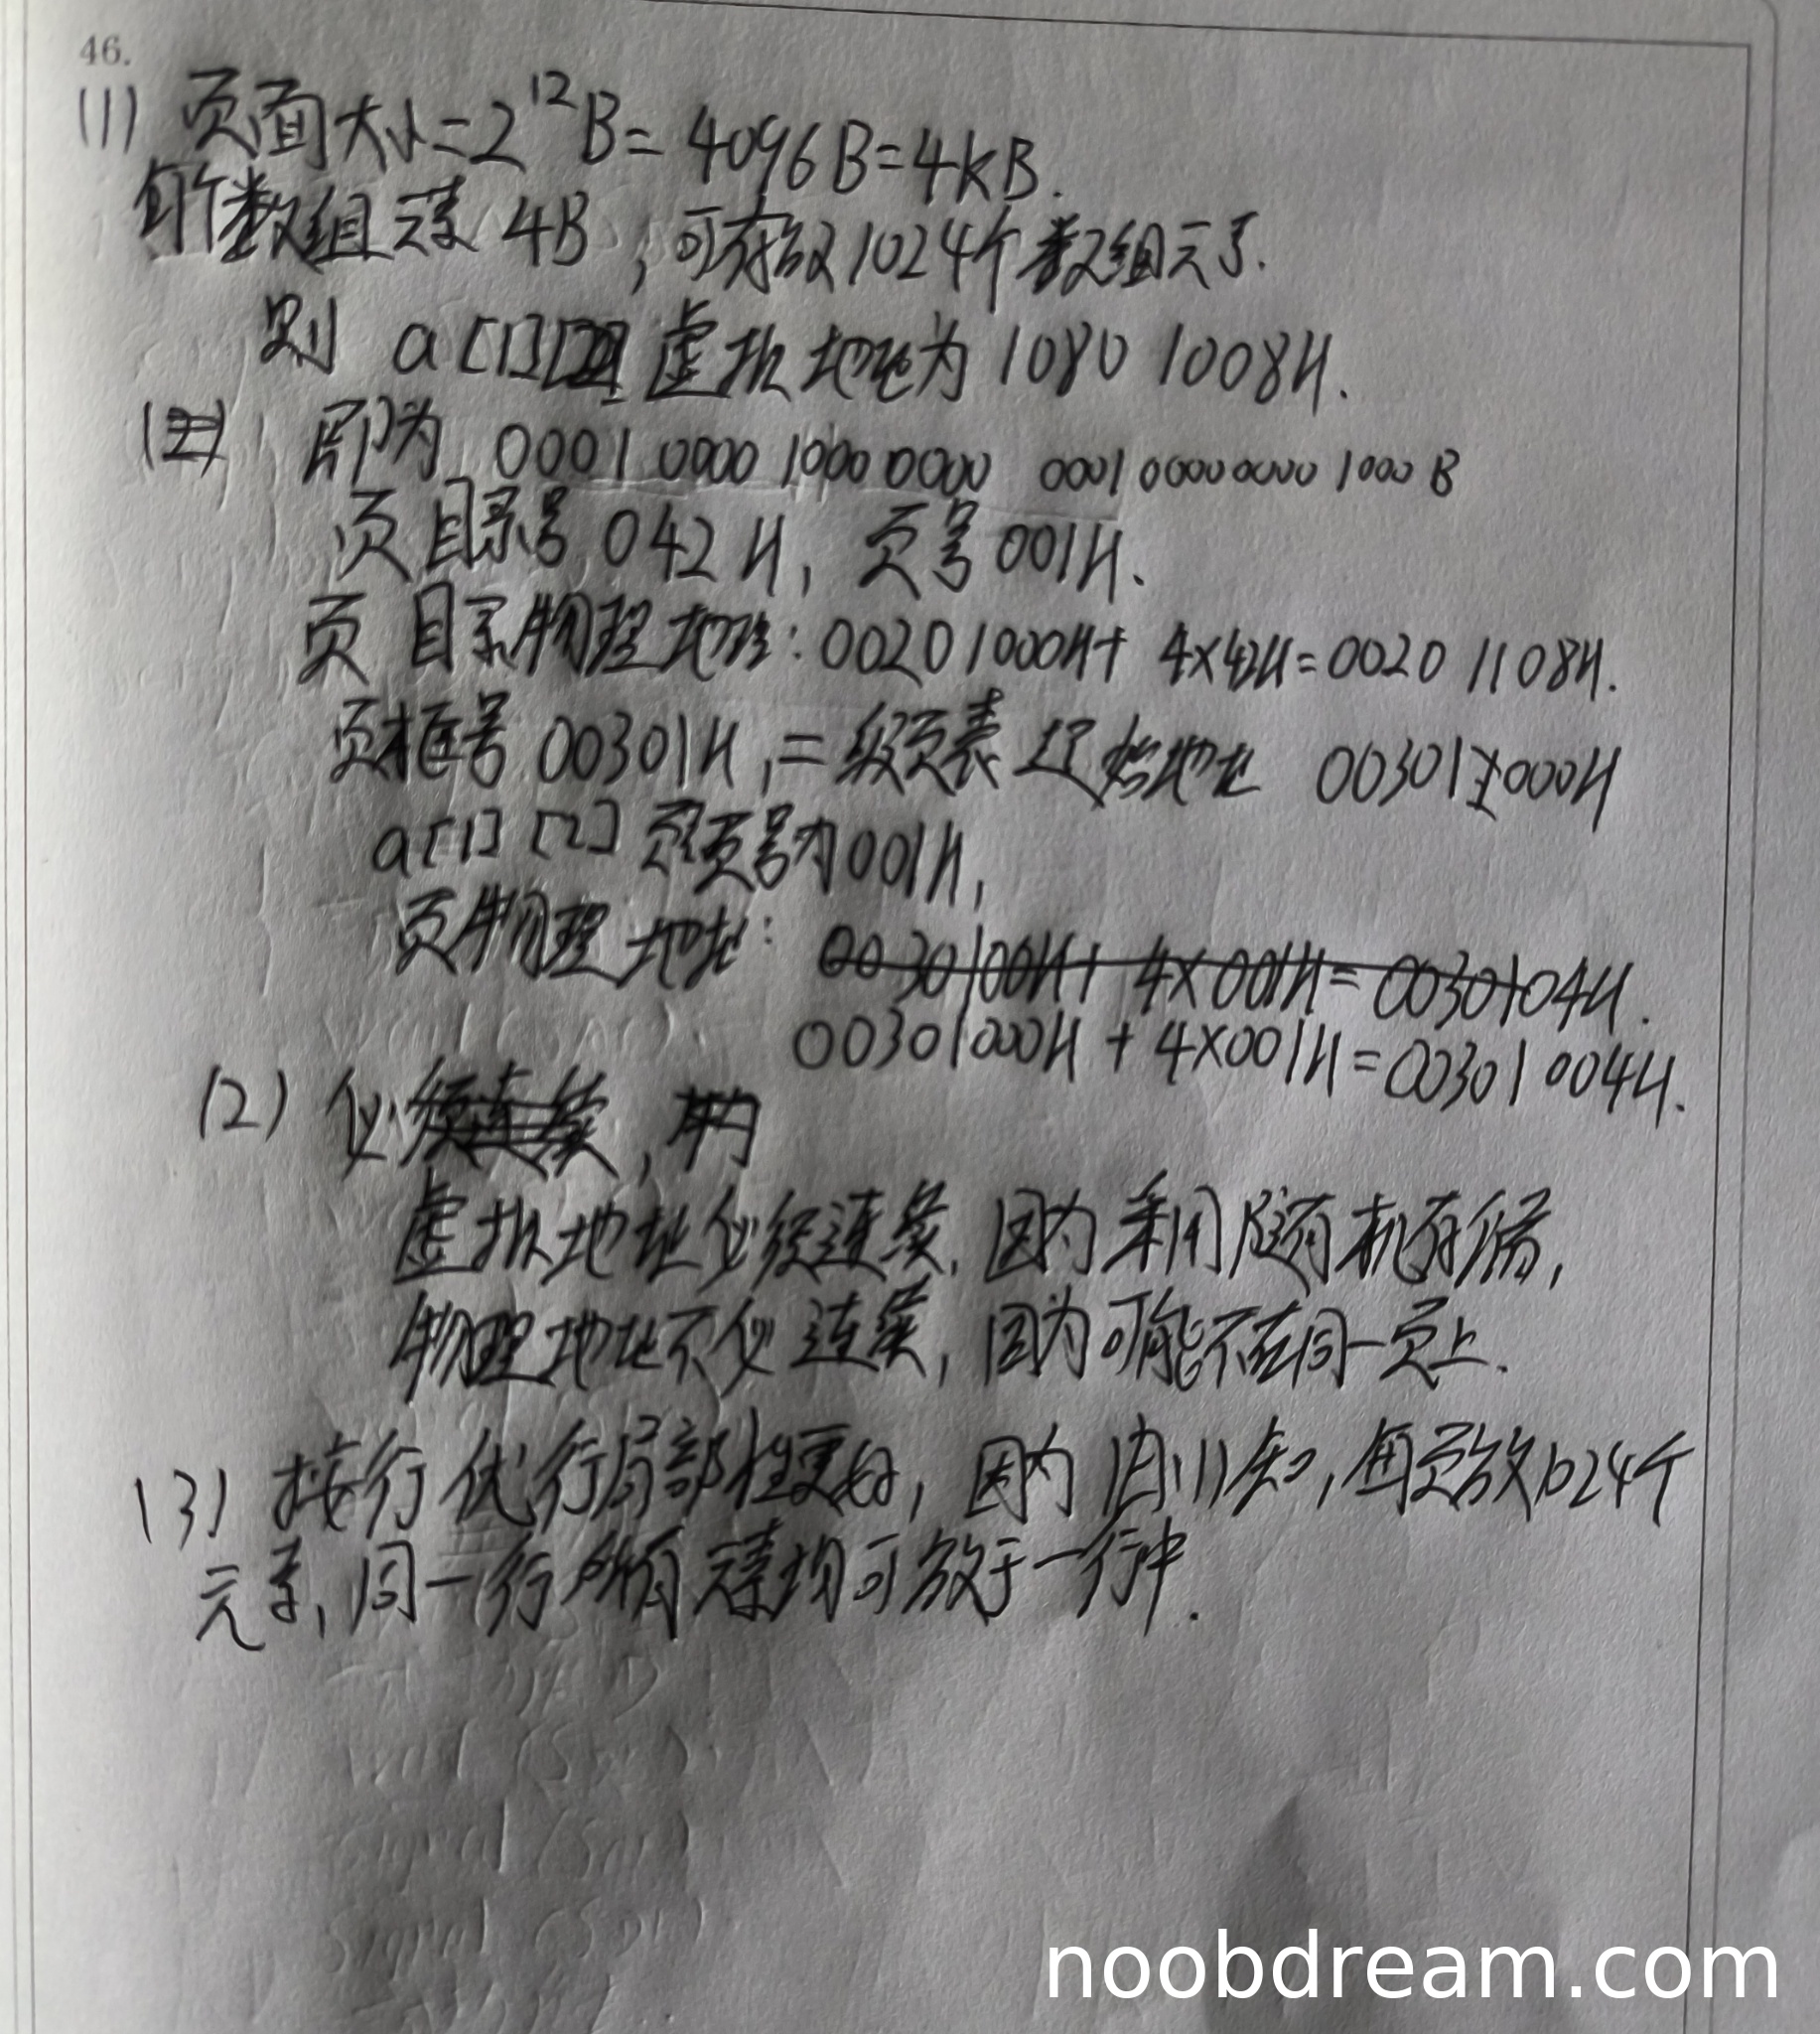 46.
(1) 页面大小=2¹²B=4096B=4KB.
每个数组元素 4B，可存放1024个数组元素.
则 a[1][2]虚拟地址为 1080 1008H.
即为 0001 0000 1000 0000 0001 0000 0000 1000 B
页目录号 042H，页号 001H.
页目录物理地址：0020 1000H+ 4×42H=0020 1108H.
页框号 00301H，二级页表起始地址 00301000H
a[1][2] 页号为001H，
页物理地址：00301 00H+ 4×001H=0030104H.
00301000H + 4×001H=00301004H.
(2) 必须连续，
虚拟地址必须连续，因为采用随机存储，
物理地址不必连续，因为可能不在同一页上.
(3) 按行优行局部性更好，因为由(1)知，每页放1024个
元素，同一行所有元素均可放于一行中.
noobdream.com